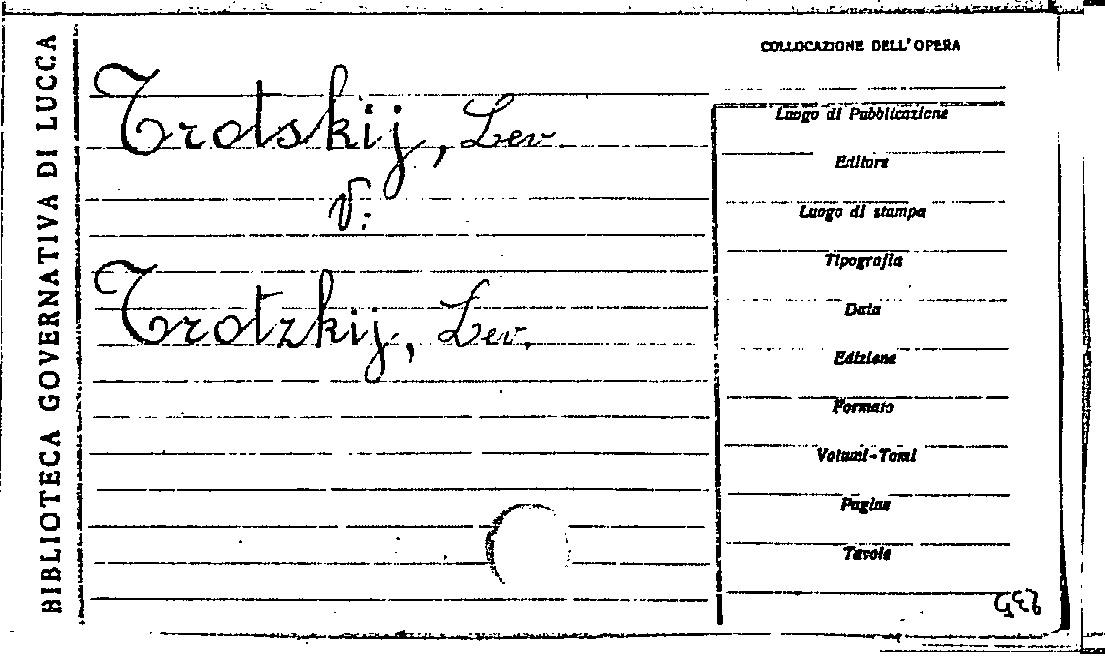 BIBLIOTECA GOVERNATIVA DI LUCCA
COLLOCAZIONE DELL'OPERA
Trotskij, Lev.
V:
Trotzkij, Lev.
Luogo di Pubblicazione
Editore
Luogo di stampa
Tipografia
Data
Edizione
Formato
Volumi-Tomi
Pagine
Tavole